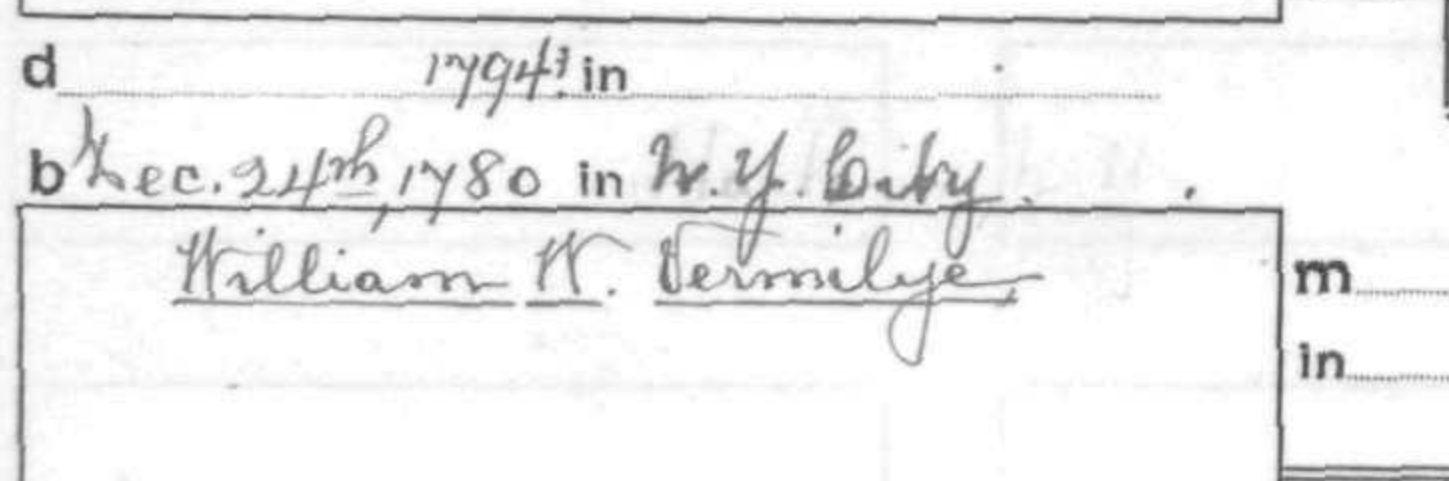 d 1794? in
b Dec. 24th, 1780 in N.Y. City.
William W. Vermilye,
m
in